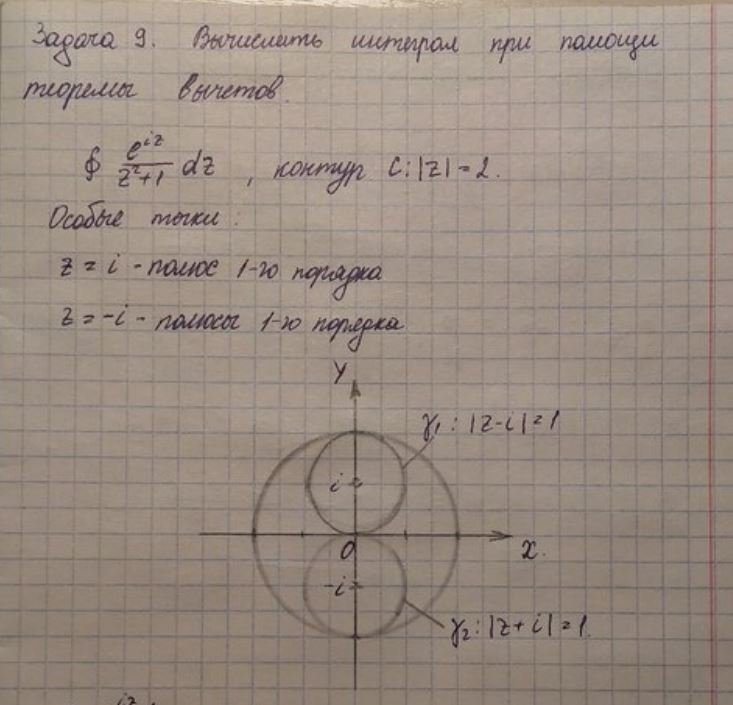 Задача 9. Вычислить интеграл при помощи
теоремы вычетов.
∮ e^{iz}/(z²+1) dz , контур C: |z|=2.
Особые точки:
z = i - полюс 1-го порядка
z = -i - полюсы 1-го порядка
Y
γ₁: |z-i|=1
i
O
X.
-i
γ₂: |z+i|=1.